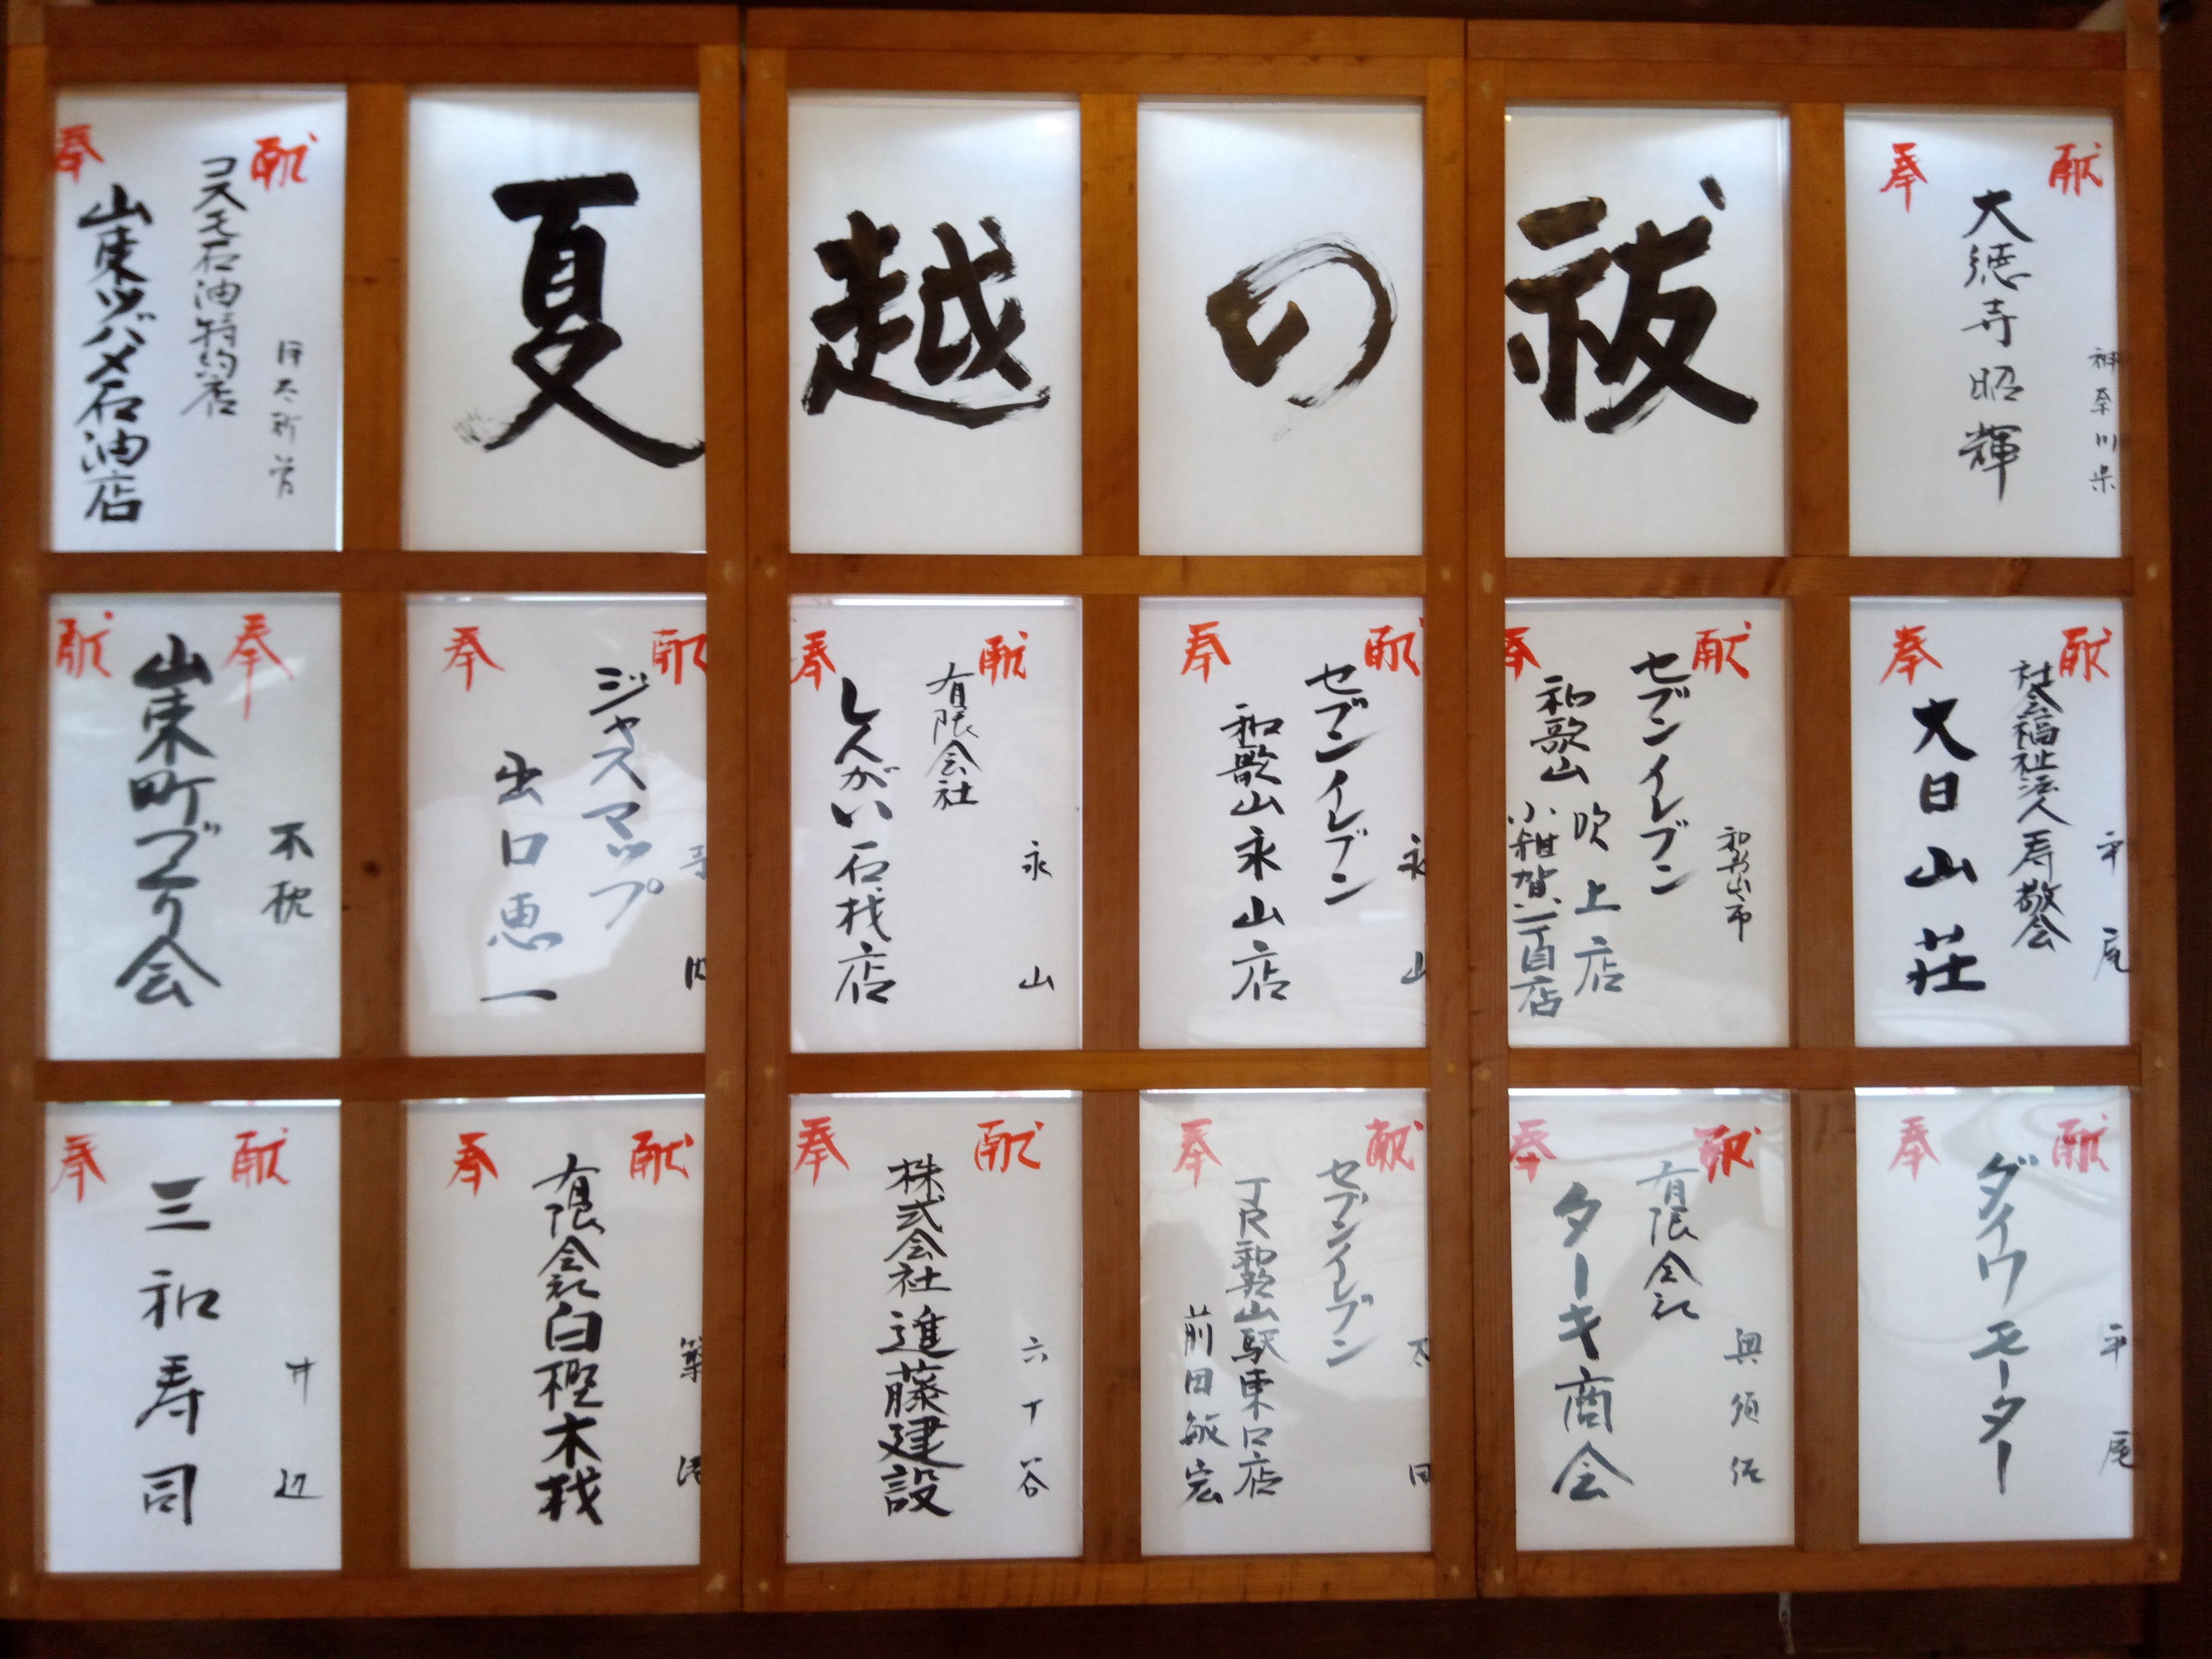 夏越の祓
奉献
コスモ石油特約店
山東ツバメ石油店
伊太祈曽
奉献
大徳寺昭輝
神奈川県
献奉
山東町づくり会
木枕
奉献
ジャスマップ
出口恵一
奉献
有限会社
しんがい石材店
永山
奉献
セブンイレブン
和歌山永山店
永山
奉献
セブンイレブン
和歌山吹上店
小雑賀二丁目店
和歌山市
奉献
社会福祉法人寿敬会
大日山荘
平尾
奉献
三和寿司
井辺
奉献
有限会社白樫木材
奉献
株式会社進藤建設
六十谷
奉献
セブンイレブン
JR和歌山駅東口店
前田敏宏
太田
奉献
有限会社
ターキ商会
奥須佐
奉献
ダイワモーター
平尾